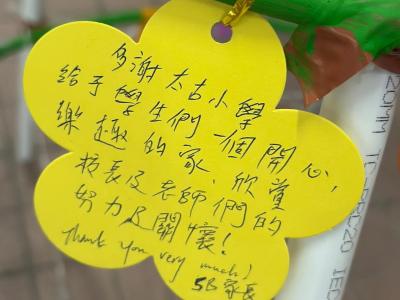 多謝太古小學
給予學生們一個開心,
樂趣的家, 欣賞
校長及老師們的
努力及關懷!
Thank you very much!
5B家長
20MM